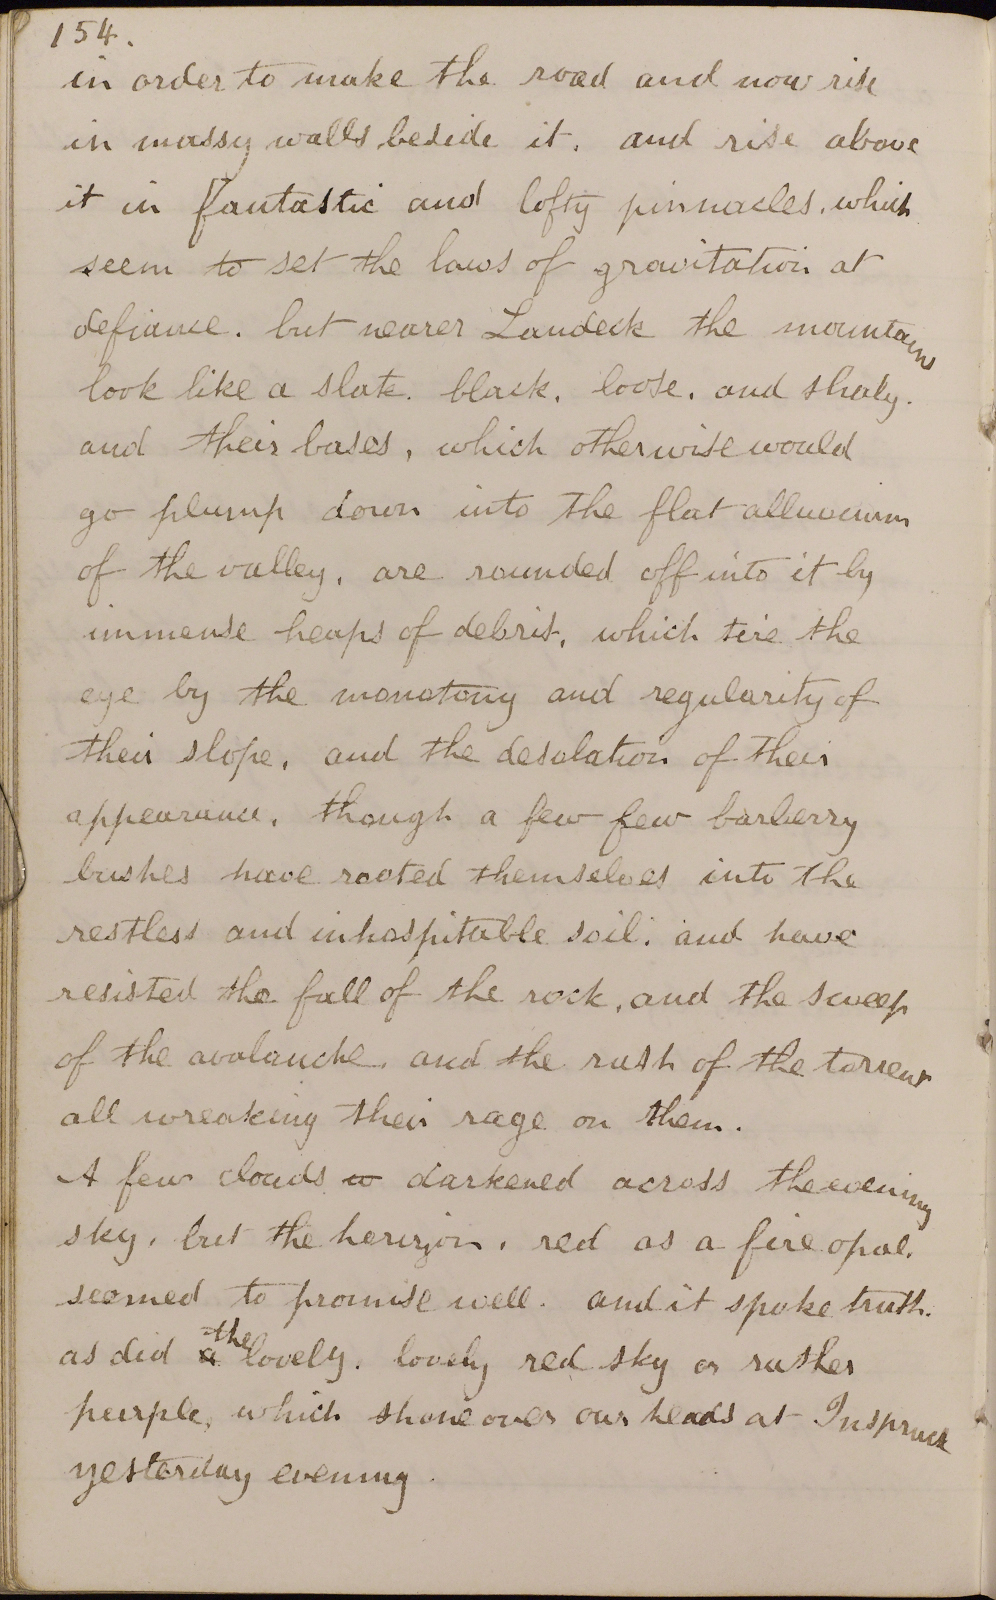 154.
in order to make the road and now rise
in massy walls beside it. and rise above
it in fantastic and lofty pinnacles. which
seem to set the laws of gravitation at
defiance. but nearer Landeck the mountains
look like a slate. black. loose. and shaly.
and their bases, which otherwise would
go plump down into the flat alluvium
of the valley. are rounded off into it by
immense heaps of debris, which tire the
eye by the monotony and regularity of
their slope, and the desolation of their
appearance. though a few few barberry
bushes have rooted themselves into the
restless and inhospitable soil. and have
resisted the fall of the rock, and the sweep
of the avalanche. and the rush of the torrent
all wreaking their rage on them.
A few clouds w darkened across the evening
sky. but the horizon. red as a fire opal.
seemed to promise well. and it spoke truth.
as did a the lovely. lovely red sky or rather
purple, which shone over our heads at Inspruck
yesterday evening.